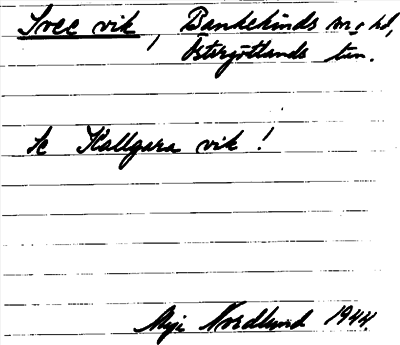 Svee vik, Bankekinds sn o hd,
Östergötlands län.
Se Kallgara vik!
Maji Nordlund 1944.